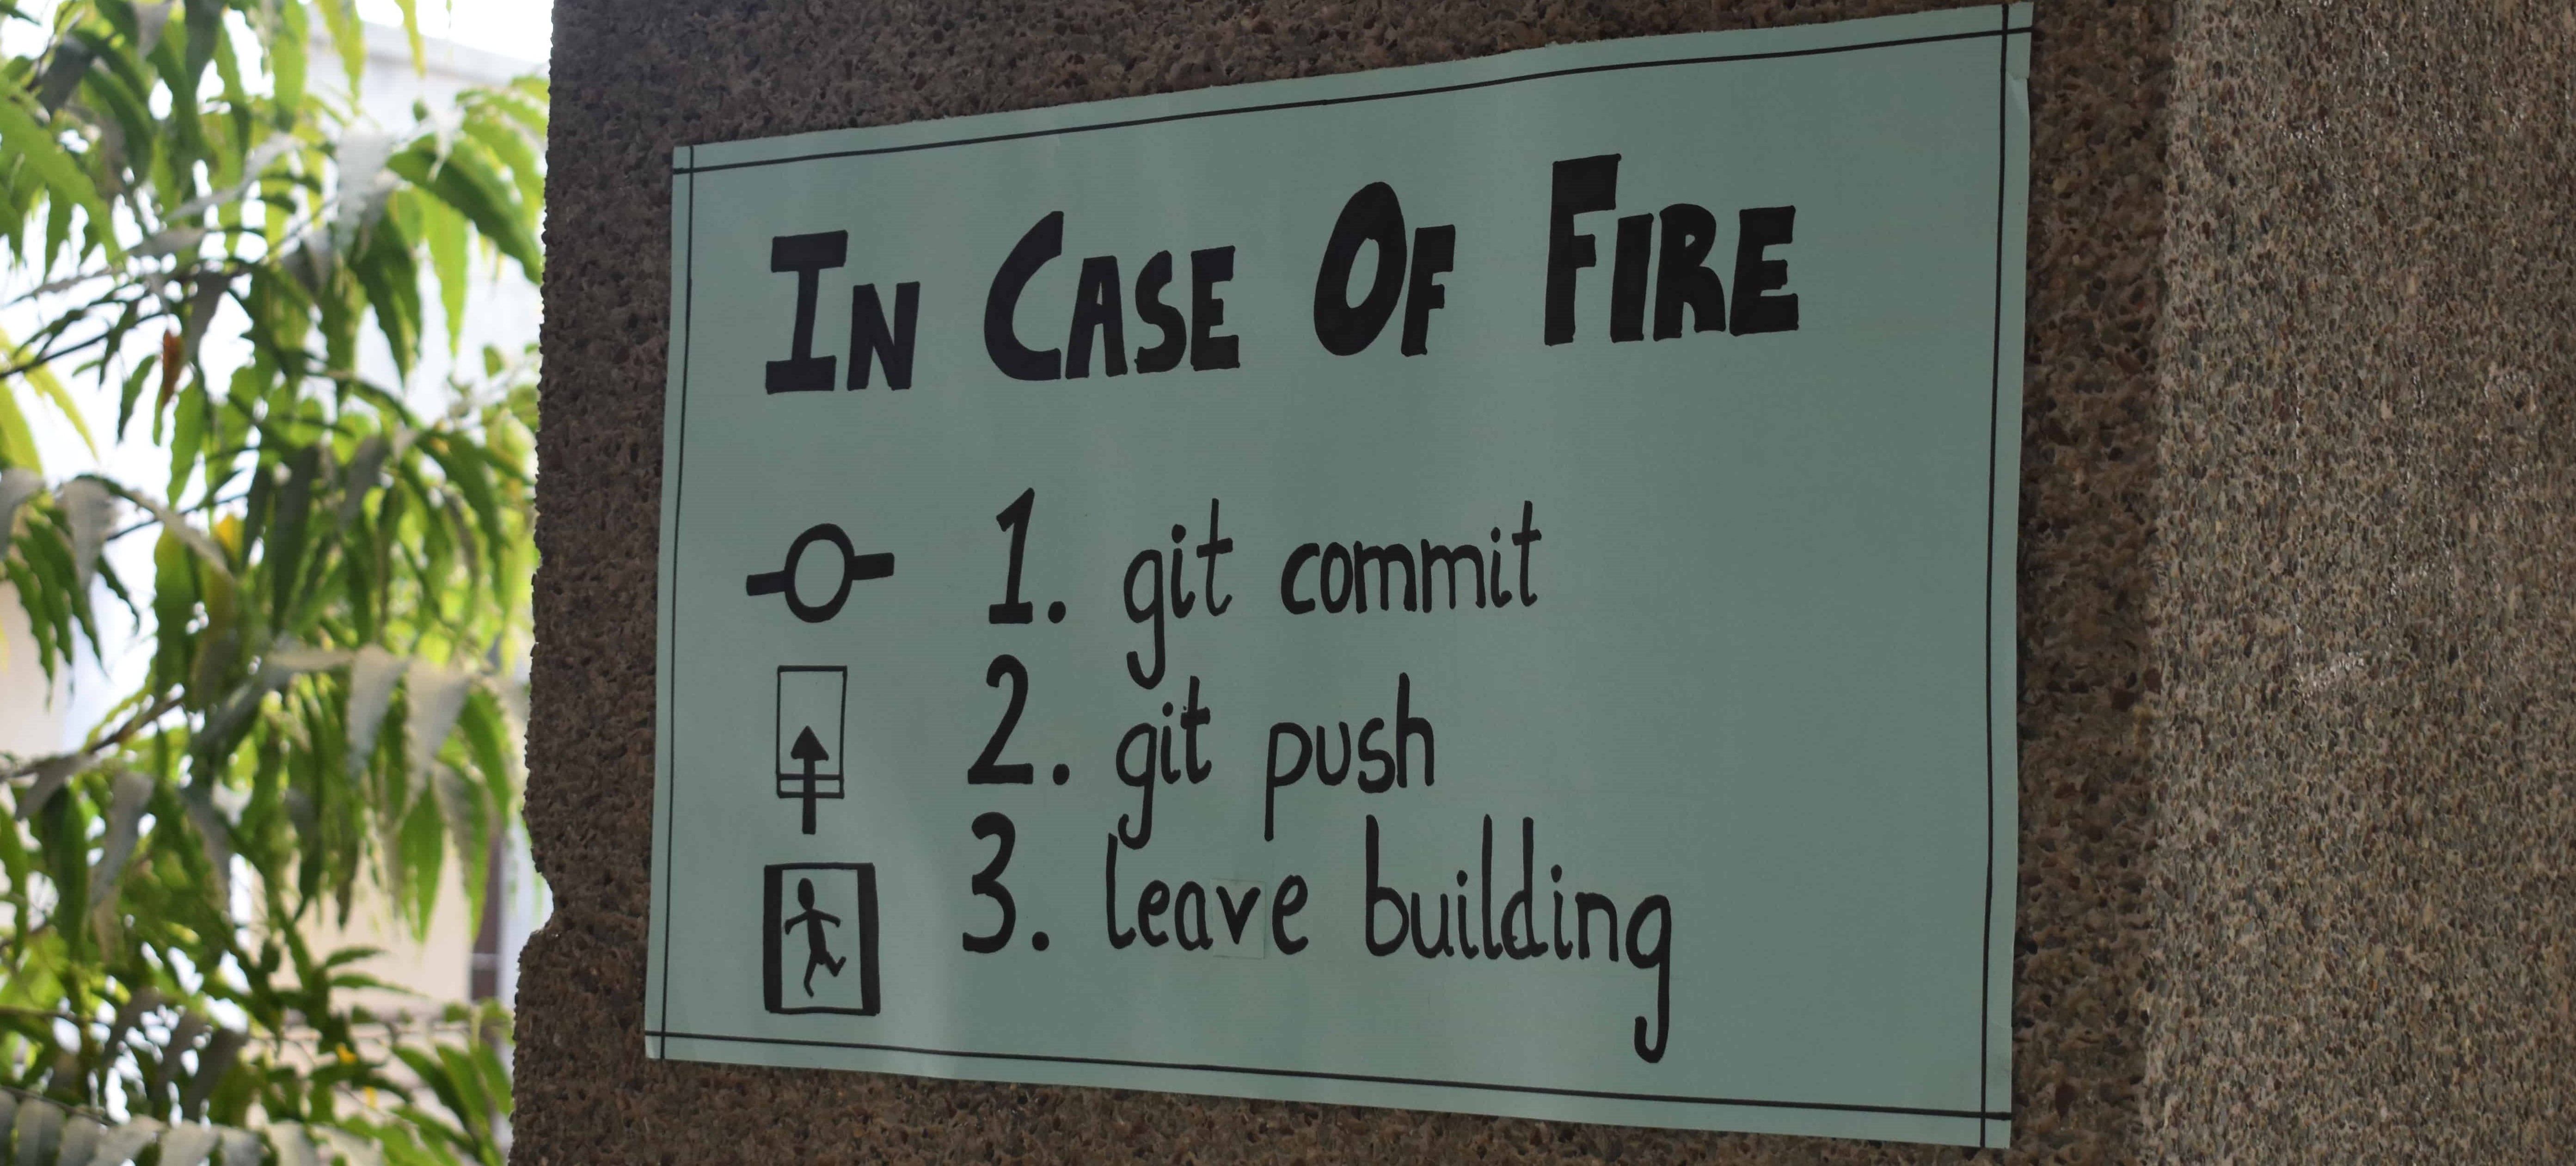 In Case Of Fire
1. git commit
2. git push
3. leave building